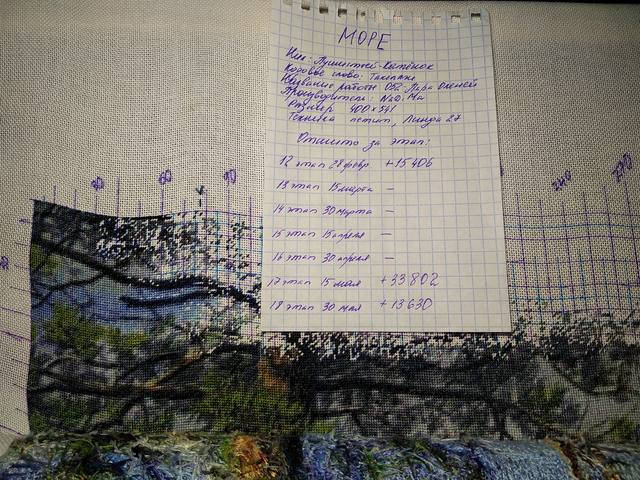 МОРЕ
Ник: Пушистый-Котёнок
Кодовое слово: Такелаж
Название работы 052, Пара Оленей
Производитель:
Размер 400 x
Техника петит, Линда 27
Отшито за этап:
12 этап 28 февр +15406
13 этап 15 марта —
14 этап 30 марта —
15 этап 15 апреля —
16 этап 30 апреля —
17 этап 15 мая +33802
18 этап 30 мая +13630
30 60 90 240 270